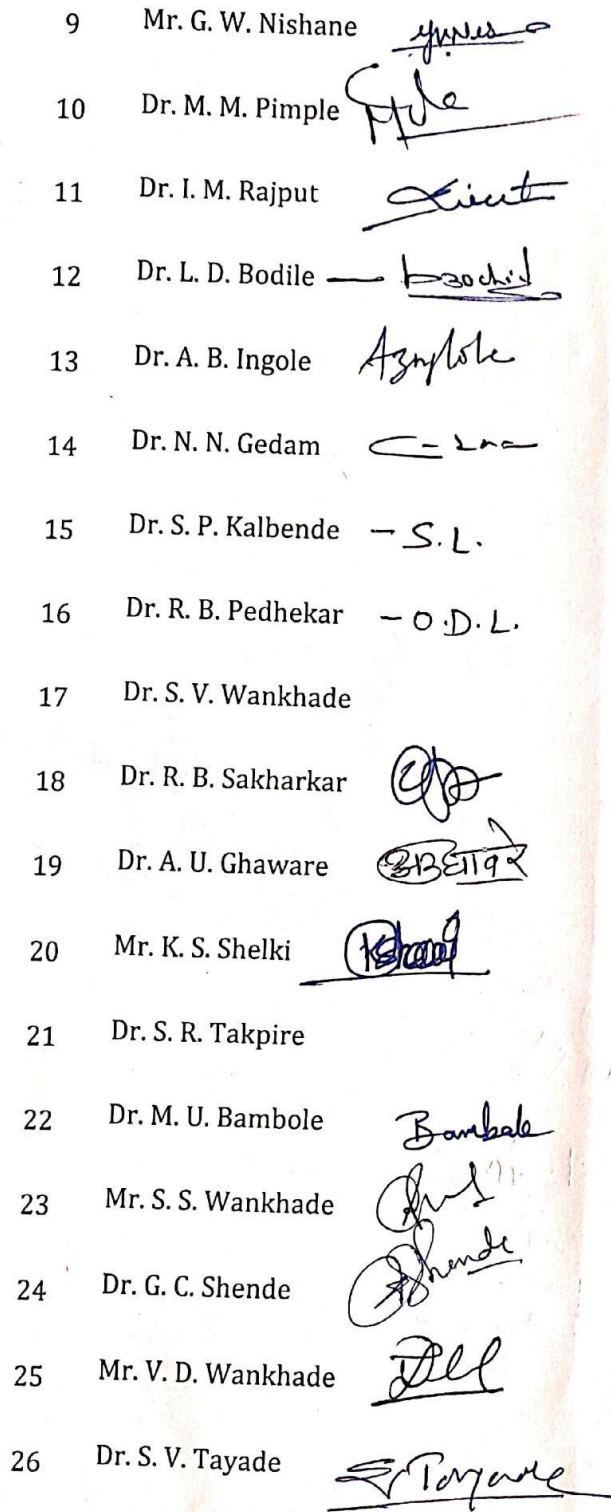 9 Mr. G. W. Nishane
10 Dr. M. M. Pimple
11 Dr. I. M. Rajput
12 Dr. L. D. Bodile —
13 Dr. A. B. Ingole
14 Dr. N. N. Gedam
15 Dr. S. P. Kalbende - S.L.
16 Dr. R. B. Pedhekar - O.D.L.
17 Dr. S. V. Wankhade
18 Dr. R. B. Sakharkar
19 Dr. A. U. Ghaware
20 Mr. K. S. Shelki
21 Dr. S. R. Takpire
22 Dr. M. U. Bambole Bambole
23 Mr. S. S. Wankhade
24 Dr. G. C. Shende Shende
25 Mr. V. D. Wankhade
26 Dr. S. V. Tayade Tayade